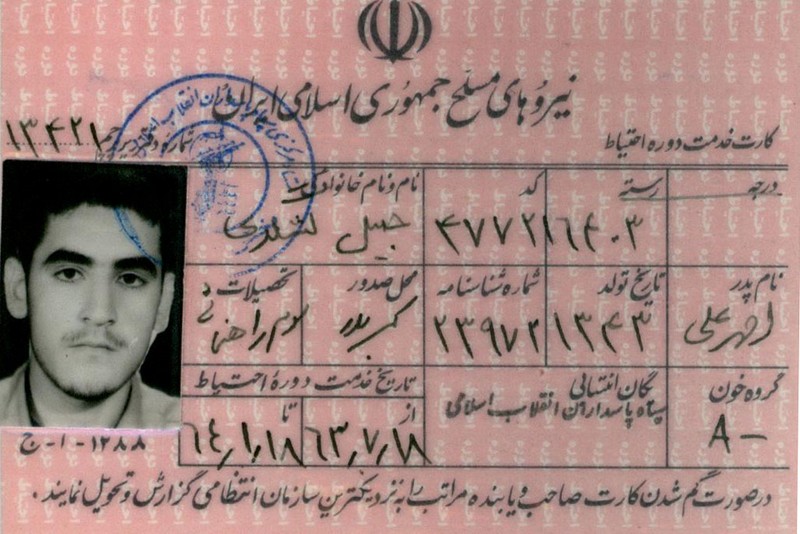 نیروهای مسلح جمهوری اسلامی ایران
کارت خدمت دوره احتیاط
شماره
۱۳۴۲۱
درجه رسته کد نام و نام خانوادگی
۱۶۴۰۳ ۴۷۷۲ جمیل
نام پدر تاریخ تولد شماره شناسنامه محل صدور تحصیلات
۱۳۴۳ ۲۳۹۷۲ سوم راهنمائی
گروه خون یگان انتسابی تاریخ خدمت دوره احتیاط
سپاه پاسداران انقلاب اسلامی
A- از تا
۶۳،۷،۱۸ ۶۴،۱،۱۸
۱۲۸۸-ا-ج
درصورت گم شدن کارت صاحب و یابنده مراتب را به نزدیکترین سازمان انتظامی گزارش و تحویل نمایند.